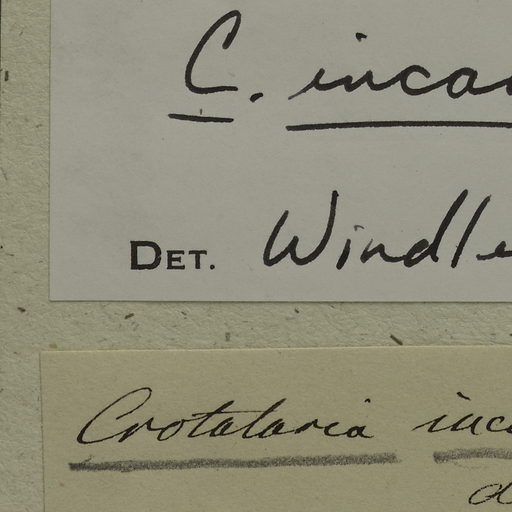 C. inca
DET. Windle
Crotalaria inc
d